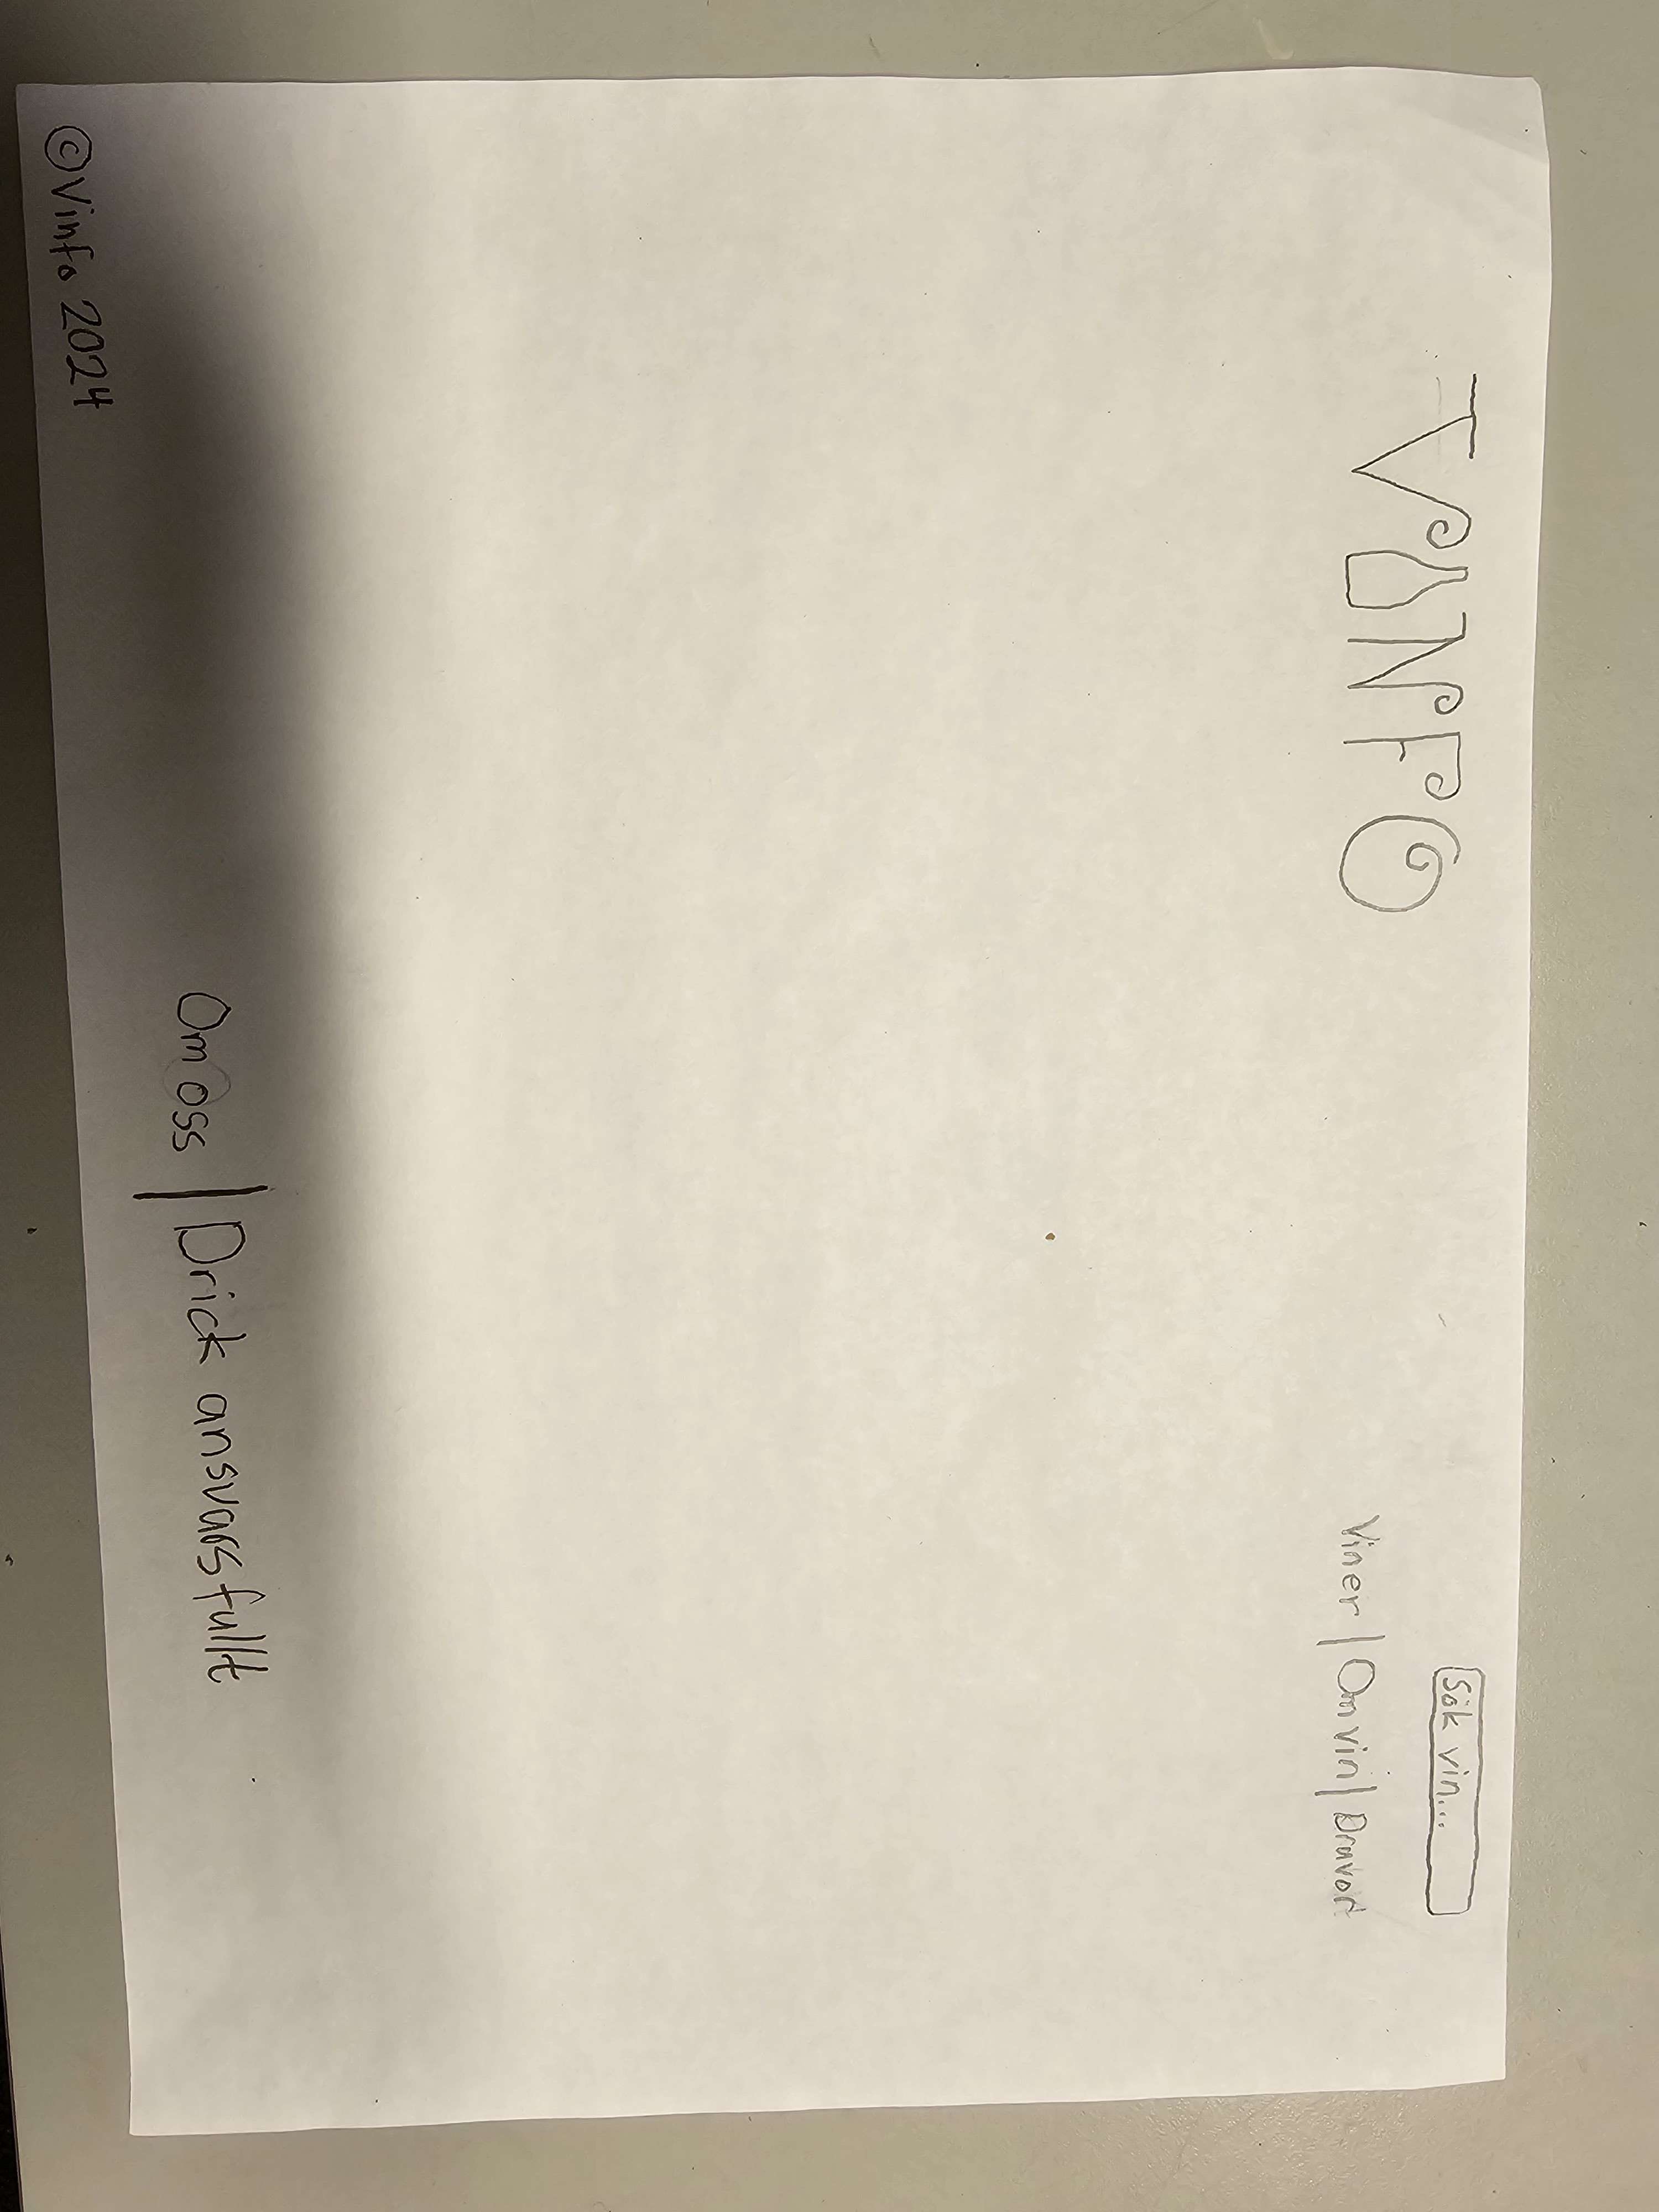 VINFO
Sök vin...
Viner | Om vin | Druvor
Om oss | Drick ansvarsfullt
©Vinfo 2024